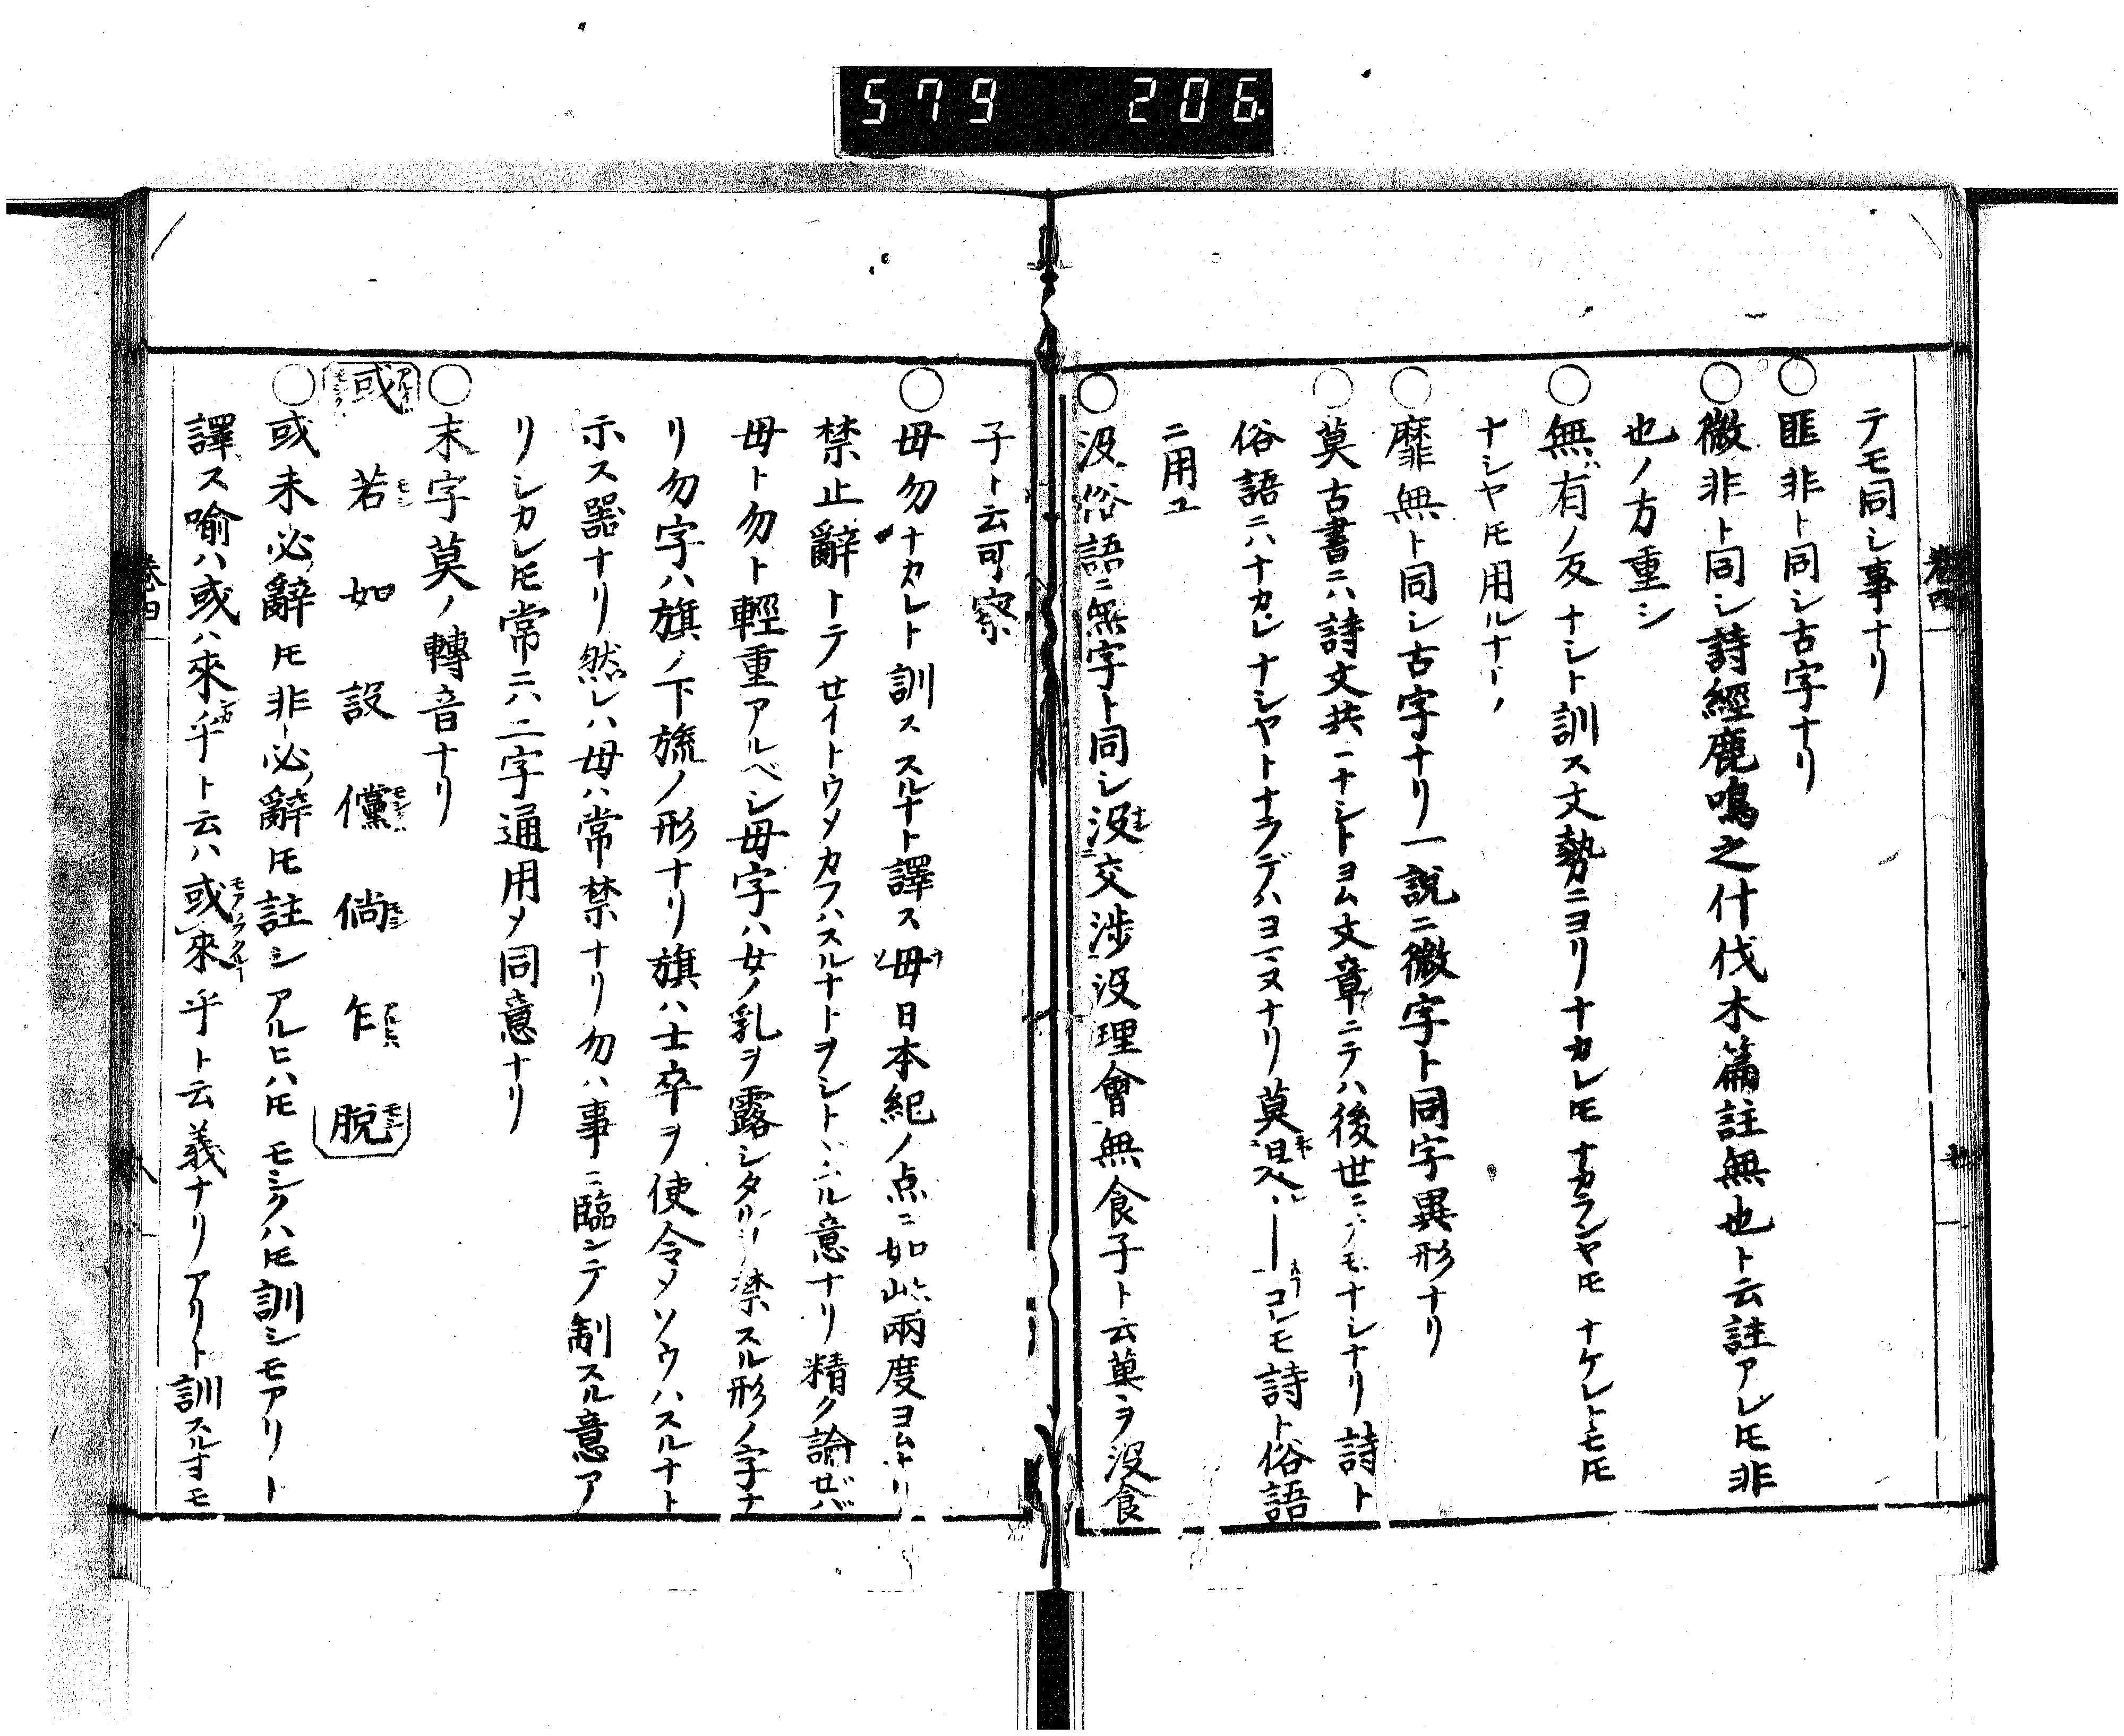 579 206
巻四
テモ同シ事ナリ
○匪非ト同シ古字ナリ
○微非ト同シ詩經鹿鳴之什伐木篇註無也ト云註アレ𪜈非
也ノ方重シ
○無有ノ反ナシト訓ス文勢ニヨリナカレ𪜈ナカランヤ𪜈ナケレトモ𪜈
ナシヤ𪜈用ルナリ
○靡無ト同シ古字ナリ一說ニ微字ト同字異形ナリ
○莫古書ニハ詩文共ニナシトヨム文章ニテハ後世ニテモナシナリ詩ト
俗語ニハナカレナシヤトナラデハヨマヌナリ莫曰コレモ詩ト俗語
ニ用ユ
○没俗語ニ無字ト同シ没交涉没理會無食子ト云菓ヲ没食
子ト云可察
○毋勿ナカレト訓ススルナト譯ス毋日本紀ノ点ニ如此兩度ヨムナリ
禁止辭トテセイトウメカフハスルナトヲシトヽムル意ナリ精ク論ゼバ
毋ト勿ト輕重アルベシ毋字ハ女ノ乳ヲ露シタルヲ禁スル形ノ字ナ
リ勿字ハ旗ノ下旒ノ形ナリ旗ハ士卒ヲ使令メソウハスルナト
示ス器ナリ然レハ毋ハ常禁ナリ勿ハ事ニ臨ンテ制スル意ア
リシカレ𪜈常ニハ二字通用メ同意ナリ
○末字莫ノ轉音ナリ
或 若 如 設 儻 倘 乍 脫
○或未必辭𪜈非必辭𪜈註シアルヒハ𪜈モシクハ𪜈訓シモアリト
譯ス喻ハ或ハ來乎ト云ハ或來乎ト云義ナリアリト訓スルオモ
巻四